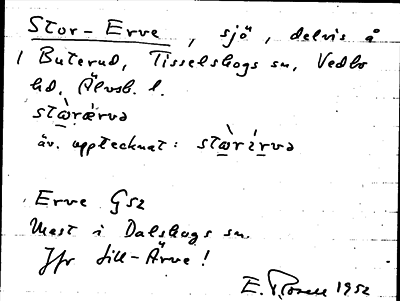 Stor-Erve, sjö, delvis å
1 Buterud, Tisselskogs sn, Vedbo
hd, Älvsb. l.
stɷ̀rærvə
äv. upptecknat: stɷ̀rirvə
Erve Gsz
Mest i Dalskogs sn.
Jfr Lill-Ärve!
E. Rosell 1952